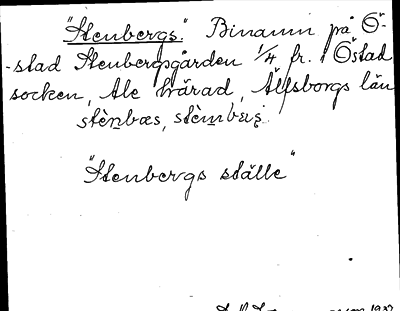 "Stenbergs." Binamn på Ö-
-stad Stenbergsgården 1/4 fr. i Östad
socken, Ale härad, Älfsborgs län
stèn̲bæs, stèm̲bæs̨.
"Stenbergs ställe"